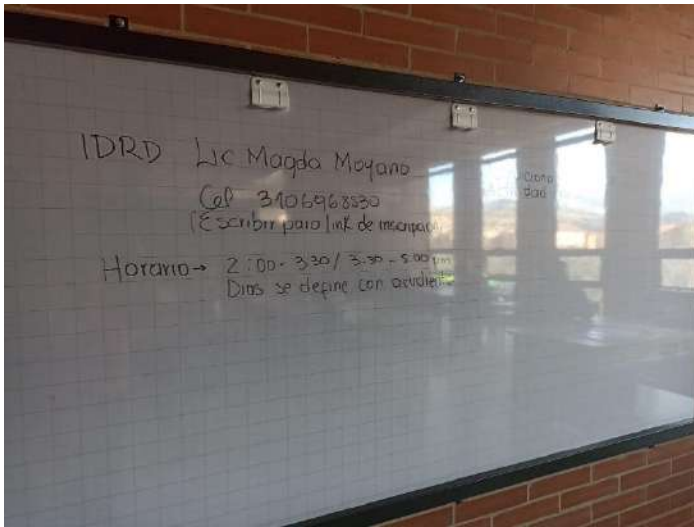 IDRD Lic Magda Moyano
Cel 3106968530
(Escribir para link de inscripción
Horario → 2:00 - 3:30 / 3:30 - 5:00 pm
Dias se define con acudiente